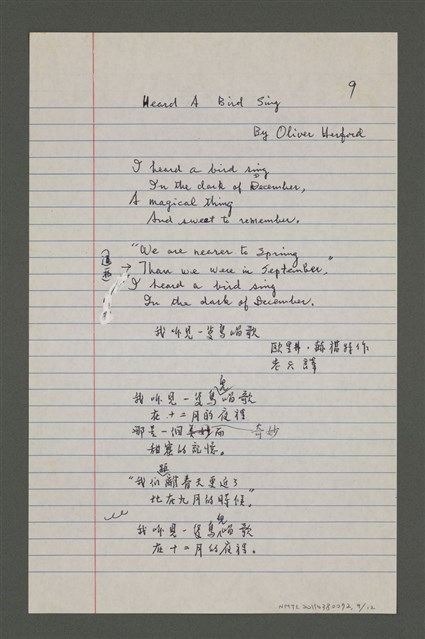 9
Heard A Bird Sing
By Oliver Herford
I heard a bird sing
In the dark of December,
A magical thing
And sweet to remember.
"We are nearer to Spring
Than we were in September,"
I heard a bird sing
In the dark of December.
我听見一隻鳥唱歌
作
我听見一隻鳥兒唱歌
在十二月的夜裡
那是一個美妙而 奇妙
甜蜜的記憶。
"我們離春天更近了
比在九月的時候,"
我听見一隻鳥兒唱歌
在十二月的夜裡。
NMTL 20110380092, 9/12